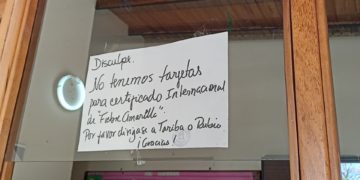 Disculpe.
No tenemos tarjetas
para certificado Internacional
de "Fiebre Amarilla".
Por favor dirijase a Tariba o Rubio
¡Gracias!